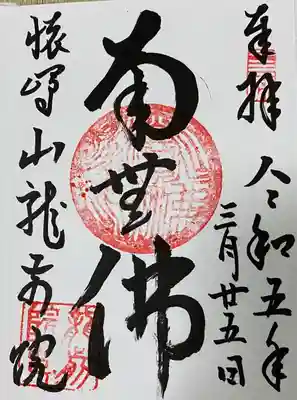 奉拝 令和五年
三月廿五日
南無佛
懐嶋山龍前院